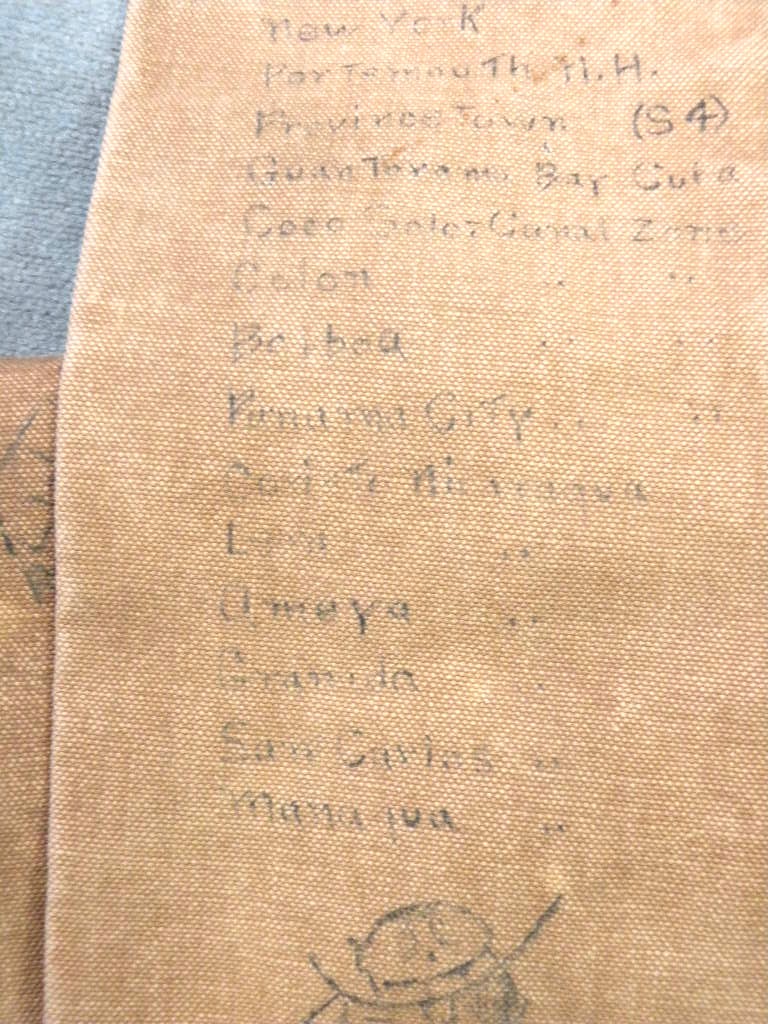 New York
Portsmouth N.H.
Province Town (S4)
Guantanamo Bay Cuba
Coco Solo, Canal Zone
Colon " "
Balboa " "
Panama City " "
Corinto Nicaragua
Leon "
"
Granada "
San Carlos "
Managua "